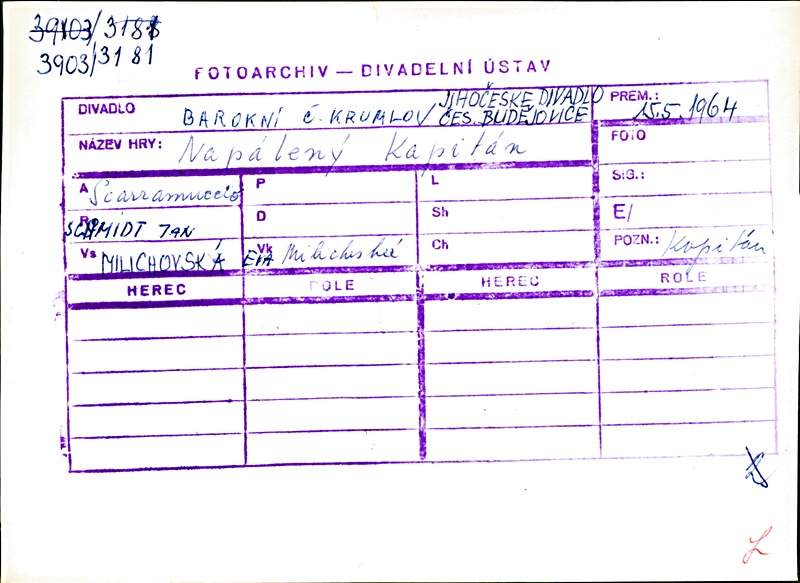 39103/3181
3903/3181
FOTOARCHIV — DIVADELNÍ ÚSTAV
DIVADLO BAROKNÍ Č. KRUMLOV JIHOČESKÉ DIVADLO ČES. BUDĚJOVICE
PREM.: 15.5.1964
NÁZEV HRY: Napálený Kapitán
FOTO
A Scarramuccio P L SIG.:
R SCHMIDT JAN D Sh E/
Vs MILICHOVSKÁ EVA Vk Ch POZN.: Kapitán
HEREC ROLE HEREC ROLE